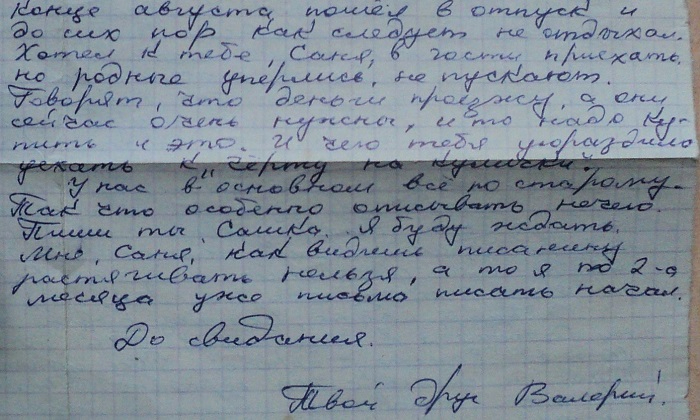 конце августа пошёл в отпуск и
до сих пор как следует не отдыхал.
Хотел к тебе, Саня, в гости приехать,
но родные упёрлись, не пускают.
Говорят, что деньги проезжу, а они
сейчас очень нужны, и то надо ку-
пить и это. И чего тебя угораздило
уехать к „чёрту на кулички"?
У нас в основном всё по старому.
Так что особенно описывать нечего.
Пиши ты, Сашка. Я буду ждать.
Мне, Саня, как видишь писанину
растягивать нельзя, а то я по 2-а
месяца уже письмо писать начал.
До свидания.
Твой друг Валерий.